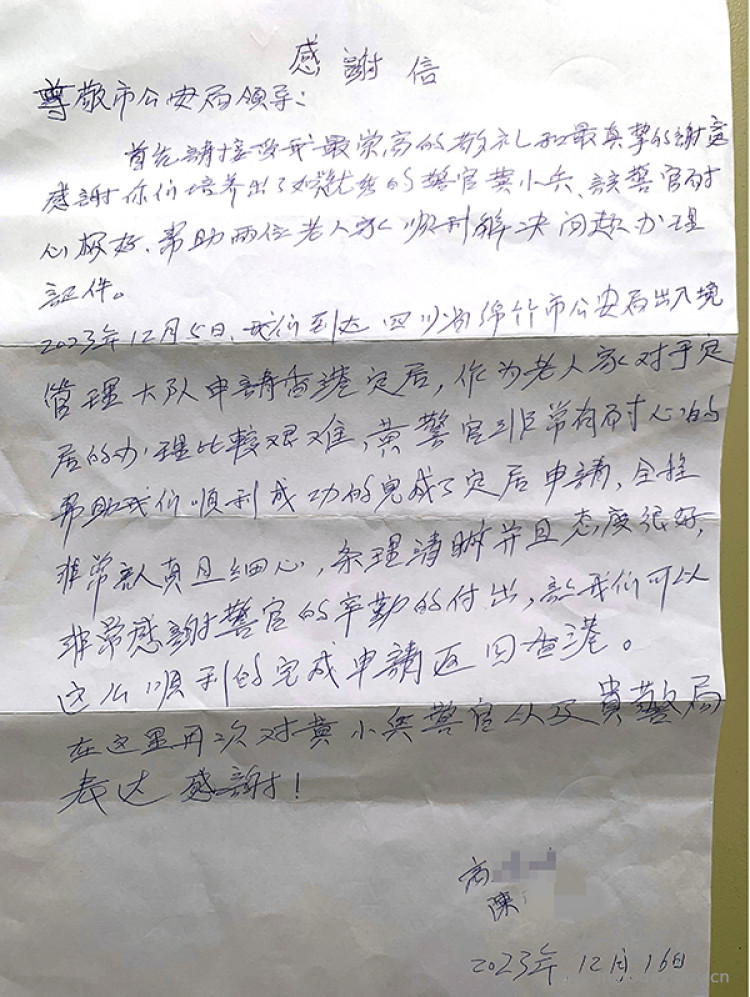 感謝信
尊敬市公安局领导：
首先請接受我最崇高的敬礼和最真挚的謝意
感謝你们培养出了如此优秀的警官黄小兵、該警官耐
心极好，帮助两位老人家顺利解决问题办理
証件。
2023年12月5日，我们到达四川省绵竹市公安局出入境
管理大队申請香港定居，作为老人家对于定
居的办理比較艰难，黄警官非常有耐心的
帮助我们順利成功的完成了定居申請，全程
非常認真且细心，条理清晰并且态度很好，
非常感謝警官的辛勤的付出，讓我们可以
这么順利的完成申請返回香港。
在这里再次对黄小兵警官以及貴警局
表达感謝！
高
陳
2023年12月16日